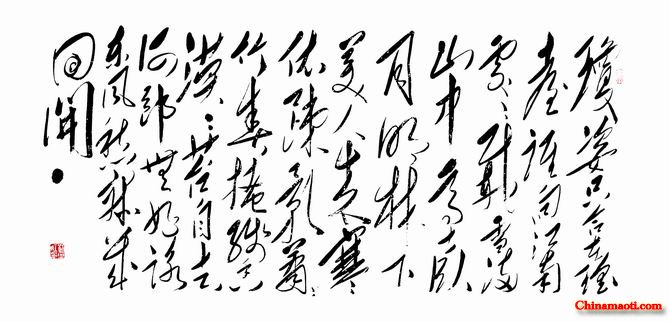 瓊姿只合在瑶
臺誰向江南
處々栽雪滿
山中高士臥
月明林下
美人来寒
依疎影蕭々
竹春掩残香
漠々苔自去
何郎無好詠
東風愁寂幾
回開
Chinamaoti.com